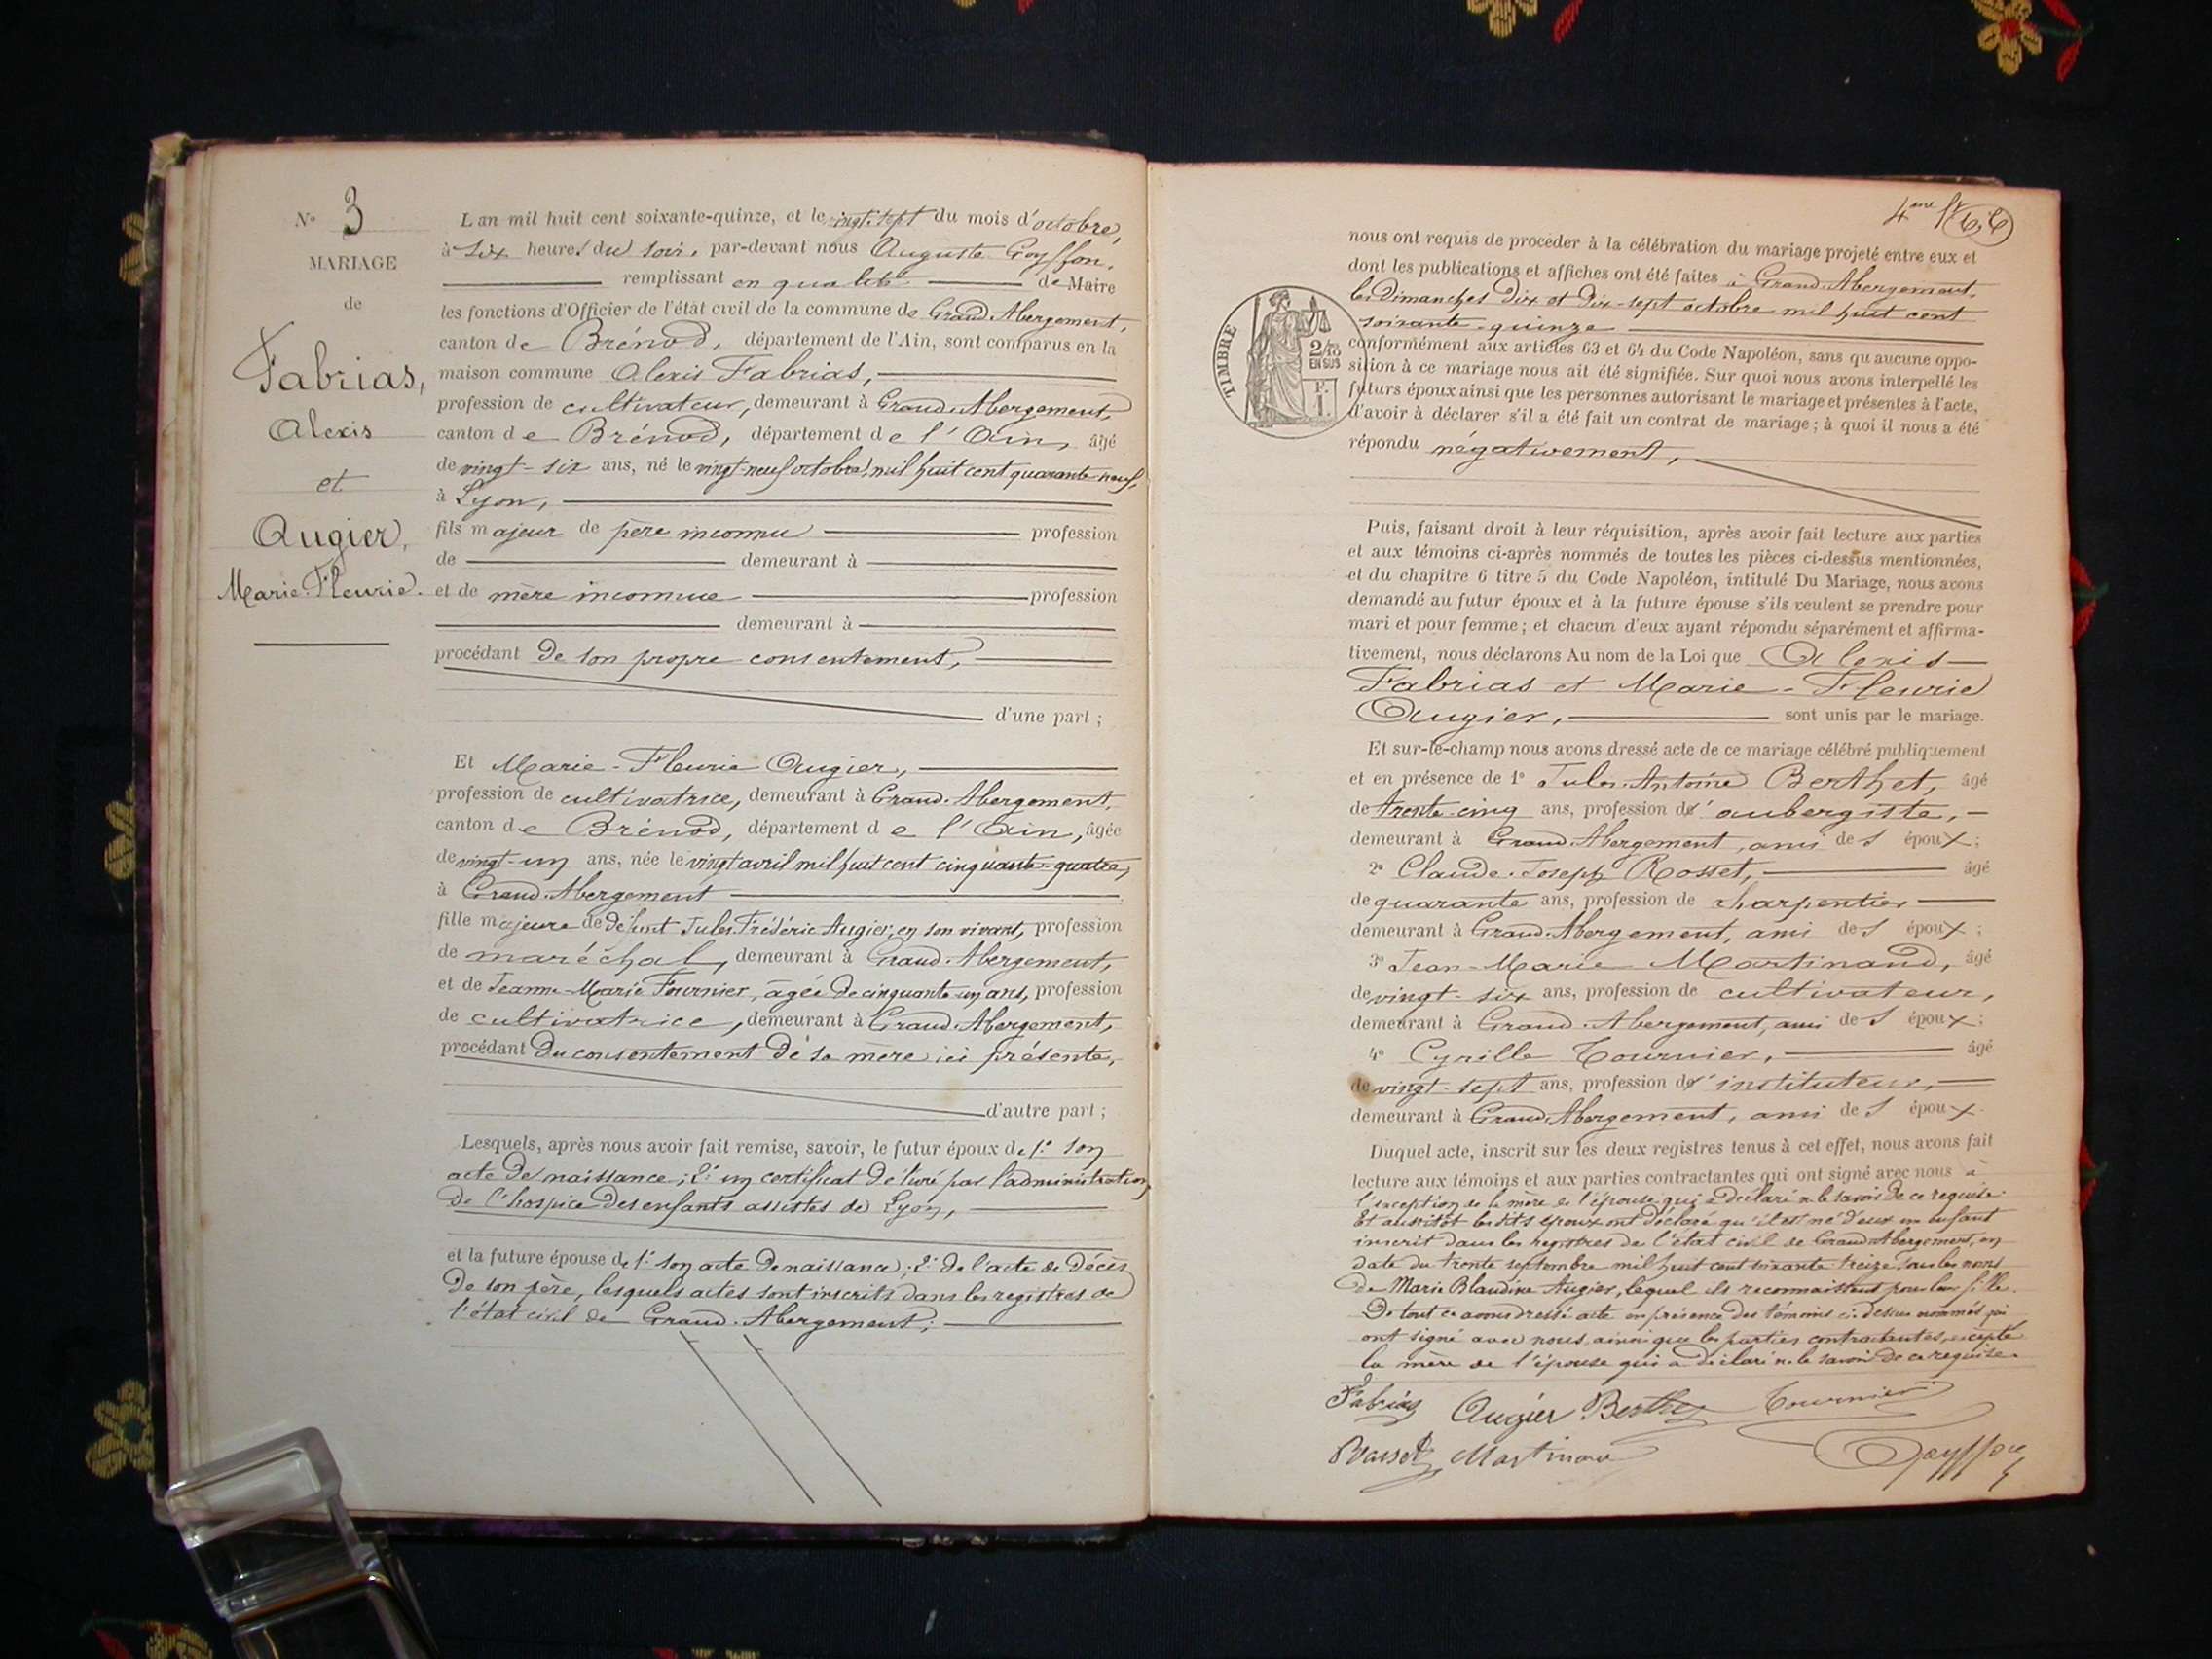 N° 3
MARIAGE
de
Fabrias,
Alexis
et
Augier,
Marie-Fleurie.
L'an mil huit cent soixante-quinze, et le vingt-sept du mois d'octobre,
à six heures du soir, par-devant nous Auguste Goyffon,
remplissant en qualité de Maire
les fonctions d'Officier de l'état civil de la commune de Grand-Abergement,
canton de Brénod, département de l'Ain, sont comparus en la
maison commune Alexis Fabrias,
profession de cultivateur, demeurant à Grand-Abergement,
canton de Brénod, département de l'Ain, âgé
de vingt-six ans, né le vingt-neuf octobre mil huit cent quarante-neuf,
à Lyon,
fils majeur de père inconnu profession
de demeurant à
et de mère inconnue profession
demeurant à
procédant de son propre consentement,
d'une part ;
Et Marie-Fleurie Augier,
profession de cultivatrice, demeurant à Grand-Abergement,
canton de Brénod, département de l'Ain, âgée
de vingt-un ans, née le vingt avril mil huit cent cinquante-quatre,
à Grand-Abergement
fille majeure de défunt Jules-Frédéric Augier, en son vivant, profession
de maréchal, demeurant à Grand-Abergement,
et de Jeanne-Marie Fournier, âgée de cinquante-un ans, profession
de cultivatrice, demeurant à Grand-Abergement,
procédant du consentement de sa mère ici présente,
d'autre part ;
Lesquels, après nous avoir fait remise, savoir, le futur époux de 1° son
acte de naissance ; 2° un certificat délivré par l'administration
de l'hospice des enfants assistés de Lyon,
et la future épouse de 1° son acte de naissance ; 2° de l'acte de décès
de son père, lesquels actes sont inscrits dans les registres de
l'état civil de Grand-Abergement ;
4me
nous ont requis de procéder à la célébration du mariage projeté entre eux et
dont les publications et affiches ont été faites à Grand-Abergement,
les Dimanches dix et dix-sept octobre mil huit cent
soixante-quinze
TIMBRE
2/10
EN SUS
F.
1.
conformément aux articles 63 et 64 du Code Napoléon, sans qu'aucune oppo-
sition à ce mariage nous ait été signifiée. Sur quoi nous avons interpellé les
futurs époux ainsi que les personnes autorisant le mariage et présentes à l'acte,
d'avoir à déclarer s'il a été fait un contrat de mariage ; à quoi il nous a été
répondu négativement,
Puis, faisant droit à leur réquisition, après avoir fait lecture aux parties
et aux témoins ci-après nommés de toutes les pièces ci-dessus mentionnées,
et du chapitre 6 titre 5 du Code Napoléon, intitulé Du Mariage, nous avons
demandé au futur époux et à la future épouse s'ils veulent se prendre pour
mari et pour femme ; et chacun d'eux ayant répondu séparément et affirma-
tivement, nous déclarons Au nom de la Loi que Alexis
Fabrias et Marie-Fleurie
Augier, sont unis par le mariage.
Et sur-le-champ nous avons dressé acte de ce mariage célébré publiquement
et en présence de 1° Jules-Antoine Berthet, âgé
de trente-cinq ans, profession d'aubergiste,
demeurant à Grand-Abergement, ami des époux ;
2° Claude-Joseph Rosset, âgé
de quarante ans, profession de charpentier
demeurant à Grand-Abergement, ami des époux ;
3° Jean-Marie Martinand, âgé
de vingt-six ans, profession de cultivateur,
demeurant à Grand-Abergement, ami des époux ;
4° Cyrille Tournier, âgé
de vingt-sept ans, profession d'instituteur,
demeurant à Grand-Abergement, ami des époux.
Duquel acte, inscrit sur les deux registres tenus à cet effet, nous avons fait
lecture aux témoins et aux parties contractantes qui ont signé avec nous à
l'exception de la mère de l'épouse qui a déclaré ne le savoir de ce requise.
Et aussitôt lesdits époux ont déclaré qu'il est né d'eux un enfant
inscrit dans les registres de l'état civil de Grand-Abergement, en
date du trente septembre mil huit cent soixante-treize sous les noms
de Marie Blandine Augier, lequel ils reconnaissent pour leur fille.
De tout ce avons dressé acte en présence des témoins ci-dessus nommés qui
ont signé avec nous, ainsi que les parties contractantes, excepté
la mère de l'épouse qui a déclaré ne le savoir de ce requise.
Fabrias Augier Berthet Tournier
Rosset Martinand Goyffon